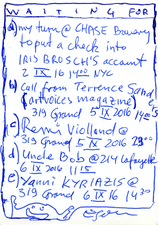 WAITING FOR
a) my turn @ CHASE Bowery
to put a check into
IRIS BROSCH'S account
2 IX 16 14:00 NYC
b) call from Terrence Sand
(artvoices magazine)
319 Grand 5 IX 2016 14:05
c) Rémi Violland @
319 Grand 5 IX 2016 23:00
d) Uncle Bob @ 214 Lafayette
6 IX 2016 11:15
e) Yanni KYRIAZIS @
319 Grand 6 IX 16 14:30